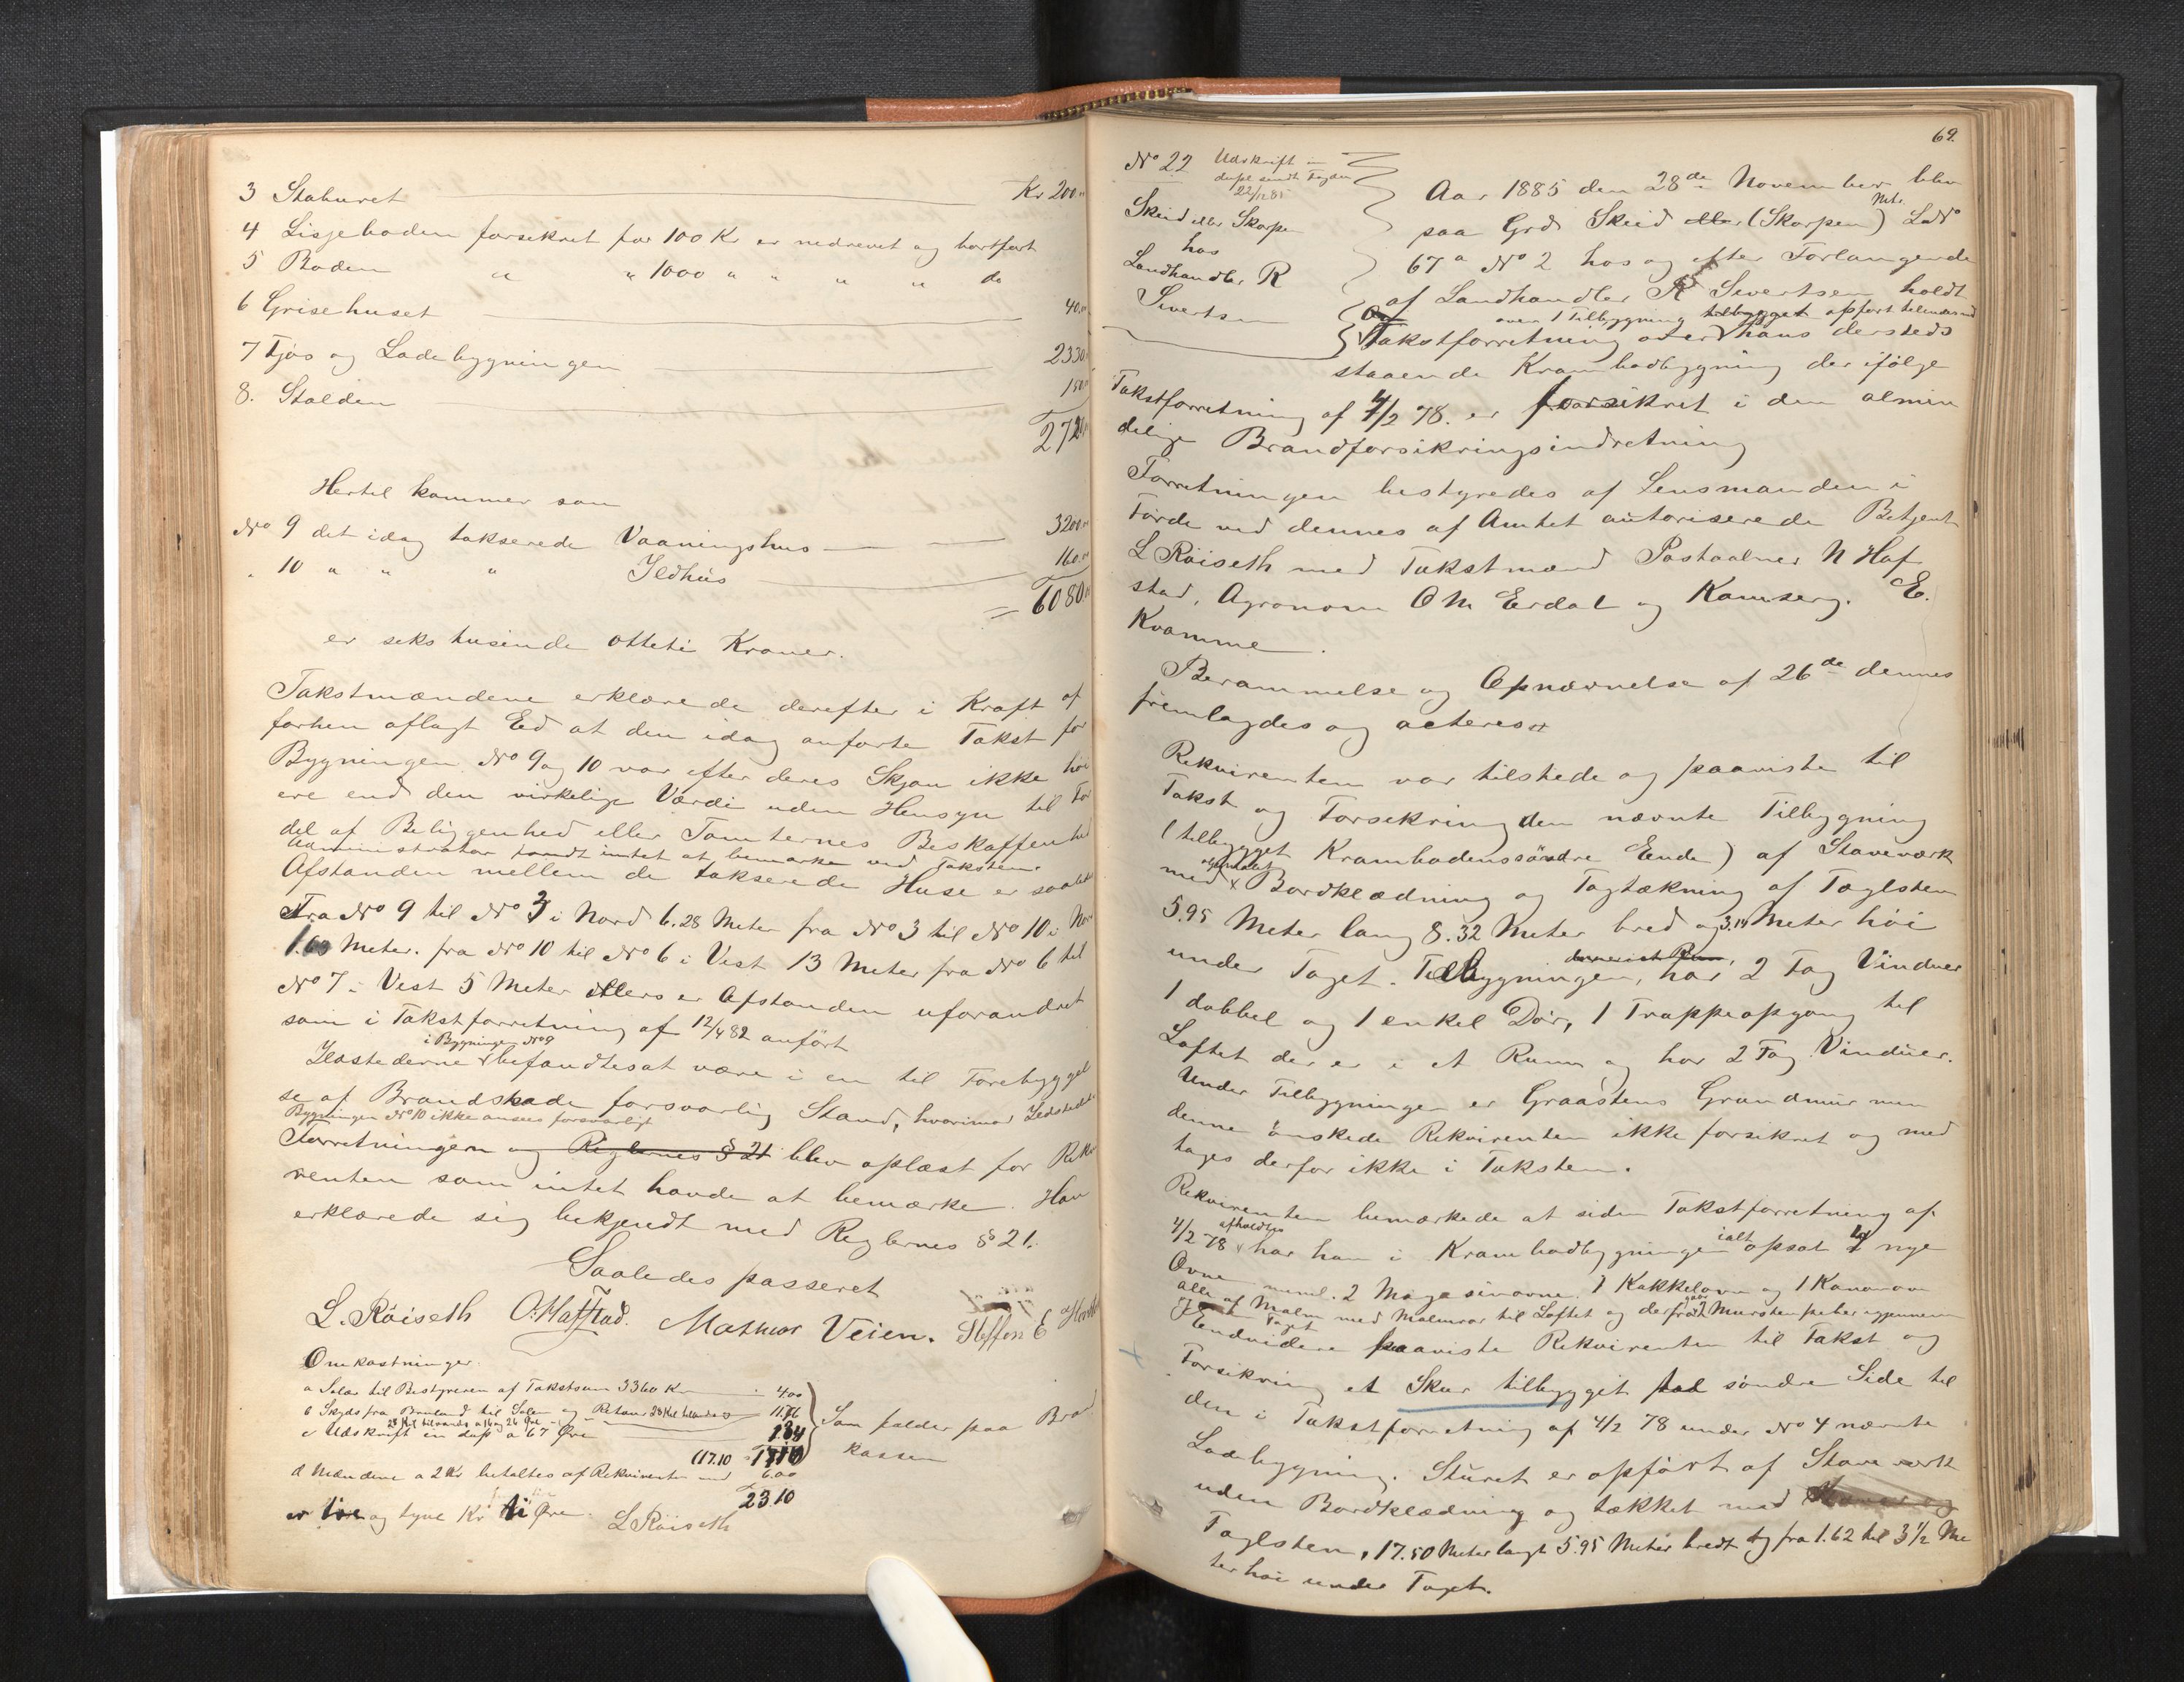 3 Staburet Kr 200
4 Lisjeboden forsikret for 100 Kr er nedrevet og bortført
5 Boden " " 1000 " " " " do
6 Grisehuset 40
7 Fjøs og Ladebygningen 2330
8. Stalden 150
2720
Hertil kommer som
No 9 det idag takserede Vaaningshus 3200
" 10 " " " Ildhus 160
= 6080
er seks tusinde otteti Kroner.
Takstmændene erklærede derefter i Kraft af
forhen aflagt Ed at den idag anførte Takst for
Bygningen No 9 og 10 var efter deres Skjøn ikke høi
ere end den virkelige Værdi uden Hensyn til For
del af Beliggenhed eller Tomternes Beskaffenhed
Administrator fandt intet at bemærke ved Taksten.
Afstanden mellem de takserede Huse er saaledes
Fra No 9 til No 3 i Nord 6.28 Meter fra No 3 til No 10 i Nor
1.60 Meter. fra No 10 til No 6 i Vest 13 Meter fra No 6 til
No 7 i Vest 5 Meter ellers er Afstanden uforandret
som i Takstforretning af 12/4 82 anført
i Bygningen No 9
Ildstederne befandtes at være i en til Forebyggel
se af Brandskade forsvarlig Stand, hvorimod Ildstedet
Bygningen No 10 ikke ansees forsvarligt
Forretningen og Reglernes § 21 blev oplæst for Rekvi
renten som intet havde at bemærke. Han
erklærede sig bekjendt med Reglernes § 21.
Saaledes passeret
L. Röiseth O. Hafstad. Mathias Veien. Steffen E
Omkostninger
a Salær til Bestyreren af Takstsum 3360 Kr 4.00
b Skyds fra Bruland til Solen og Retour
c Udskrift en dupl a 67 Øre 1.34
(17.10 17.10
Som falder paa Brand
kassen
d Mændene a 2 Kr betaltes af Rekvirenten med 6.00
23.10
er tre og tyve Kr ti Øre. L Röiseth
69.
No 22 Udskrift in
dupl sendt Fogden
22/12 85
Skeid eller Skorpen
hos
Landhandler R
Sivertsen
Aar 1885 den 28de November blev
paa Grd. Skeid eller (Skorpen) Mat. L No
67 a No 2 hos og efter Forlangende
af Landhandler R Sivertsen holdt
over 1 Tilbygning tilbygget opført
Takstforretning over hans dersteds
staaende Krambodbygning der ifølge
Takstforretning af 4/2 78. er forsikret i den almin
delige Brandforsikringsindretning
Forretningen bestyredes af Lensmanden i
Førde ved dennes af Amtet autoriserede Betjent
L Röiseth med Takstmænd Postaabner N Haf
stad, Agronom O M Erdal og Kamserg. E.
Kvamme.
Berammelse og Opnævnelse af 26de dennes
fremlagdes og acteres
Rekvirenten var tilstede og paaviste til
Takst og Forsikring den nævnte Tilbygning
(tilbygget Krambodens søndre Ende) af Staveværk
med Bordklædning og Tagtækning af Taglsten
5.95 Meter lang 8.32 Meter bred og 3.14 Meter høi
under Taget. Tilbygningen, har 2 Fag Vinduer
1 dobbel og 1 enkel Dør, 1 Trappeopgang til
Loftet der er i et Rum og har 2 Fag Vinduer.
Under Tilbygningen er Graastens Grundmur men
denne ønskede Rekvirenten ikke forsikret og med
tages derfor ikke i Taksten.
Rekvirenten bemærkede at siden Takstforretning af
4/2 78 afholdtes har han i Krambodbygningen ialt opsat 4 nye
Ovne neml. 2 Magasinovne, 1 Kakkelovn og 1 Kanonovn
alle af Malm med Malmrør til Loftet og derfra gaar 2 Murstenspiber igjennem
Taget
Endvidere paaviste Rekvirenten til Takst og
Forsikring et Skur tilbygget søndre Side til
den i Takstforretning af 4/2 78 under No 4 nævnte
Ladebygning. Skuret er opført af Stave værk
uden Bordklædning og tækket med
Taglsten, 17.50 Meter langt 5.95 Meter bredt og fra 1.62 til 3 1/2 Me
ter høi under Taget.